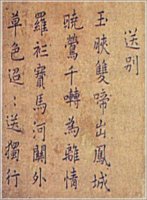 送別
玉睫雙啼出鳳城
曉鶯千囀為離情
羅衫寶馬河關外
草色迢〻送獨行